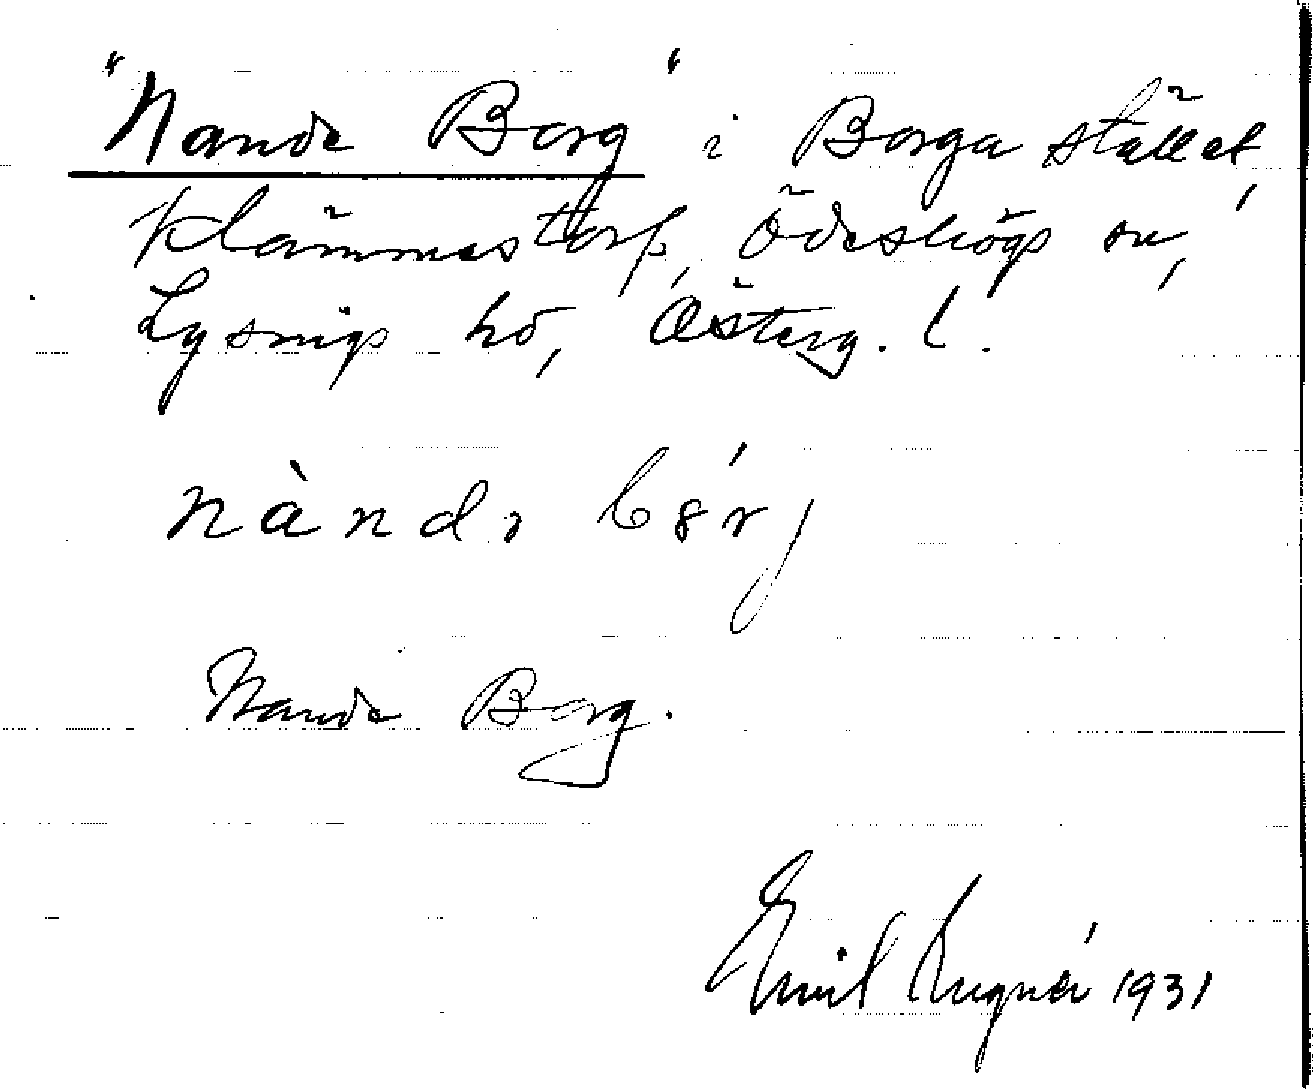 "Nande Borg" i Borga stället,
Klämmestorp, Ödeshögs sn,
Lysings hd, Österg. l.
nànde bórj
Nande Borg.
Emil 1931